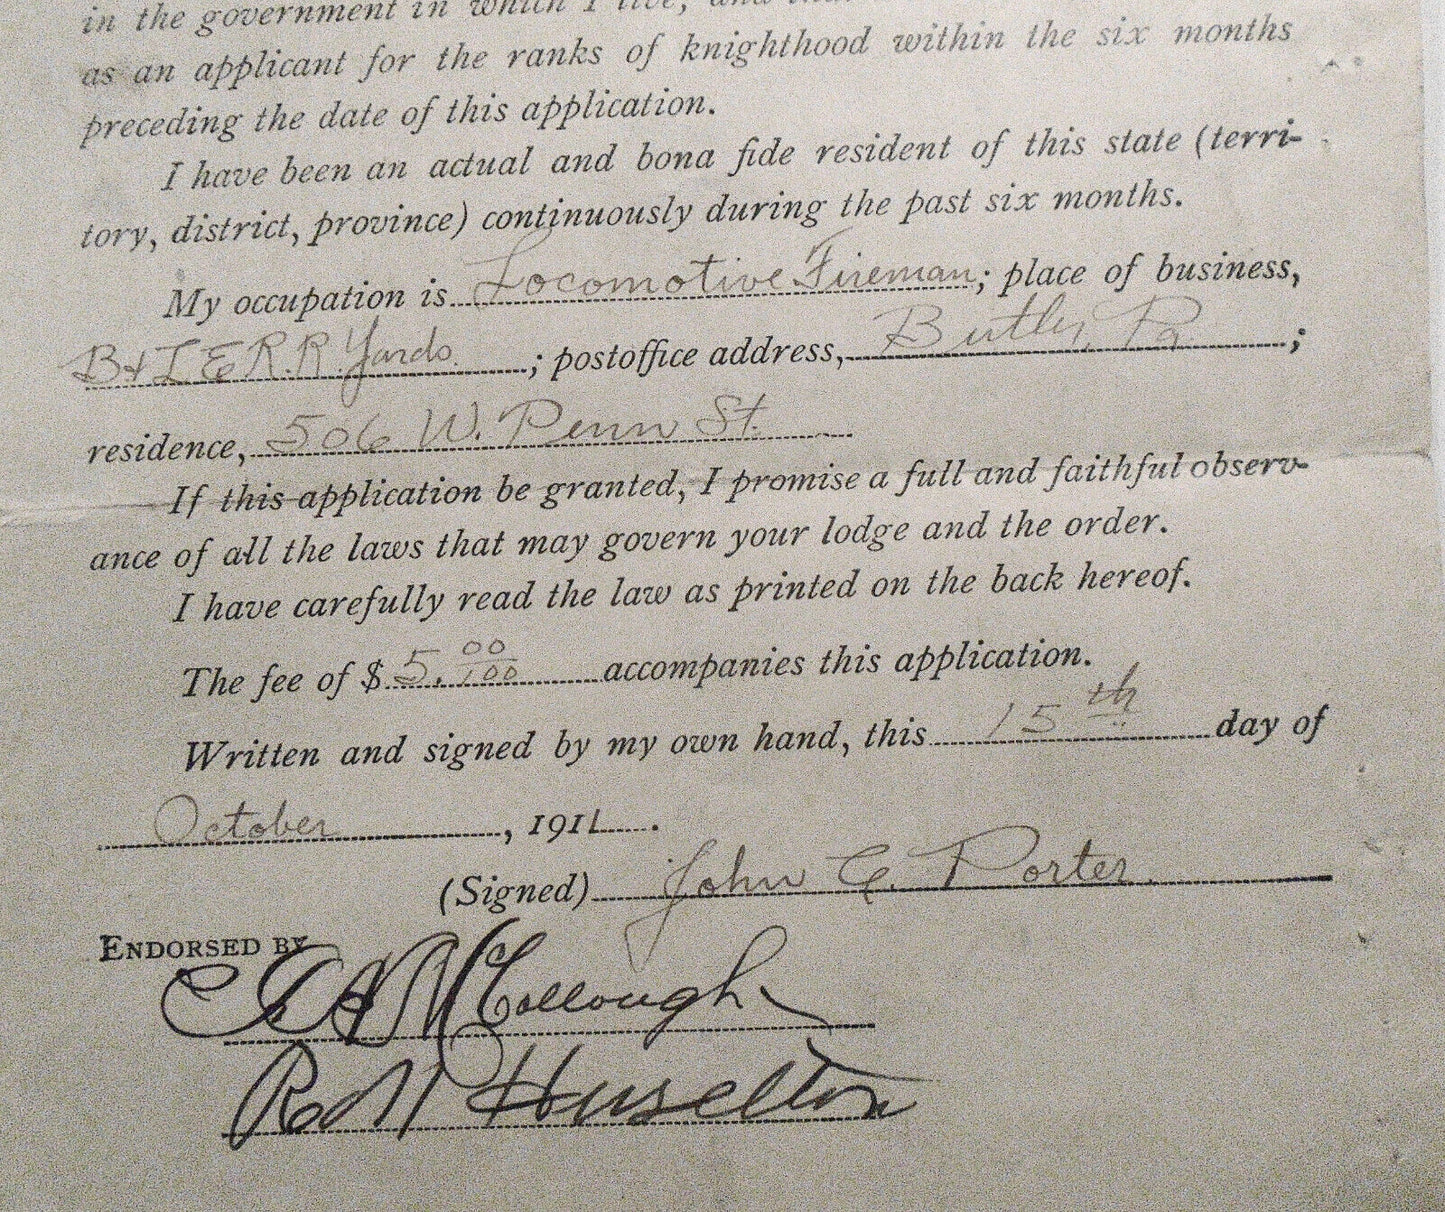 in the government in which I live; and that
as an applicant for the ranks of knighthood within the six months
preceding the date of this application.
I have been an actual and bona fide resident of this state (terri-
tory, district, province) continuously during the past six months.
My occupation is Locomotive Fireman; place of business,
B & L E R.R. Yards. ; postoffice address, Butler, Pa. ;
residence, 506 W. Penn St.
If this application be granted, I promise a full and faithful observ-
ance of all the laws that may govern your lodge and the order.
I have carefully read the law as printed on the back hereof.
The fee of $ 5.00/100 accompanies this application.
Written and signed by my own hand, this 15th day of
October , 1911 .
(Signed) John C. Porter.
ENDORSED BY
McCollough
Huselton